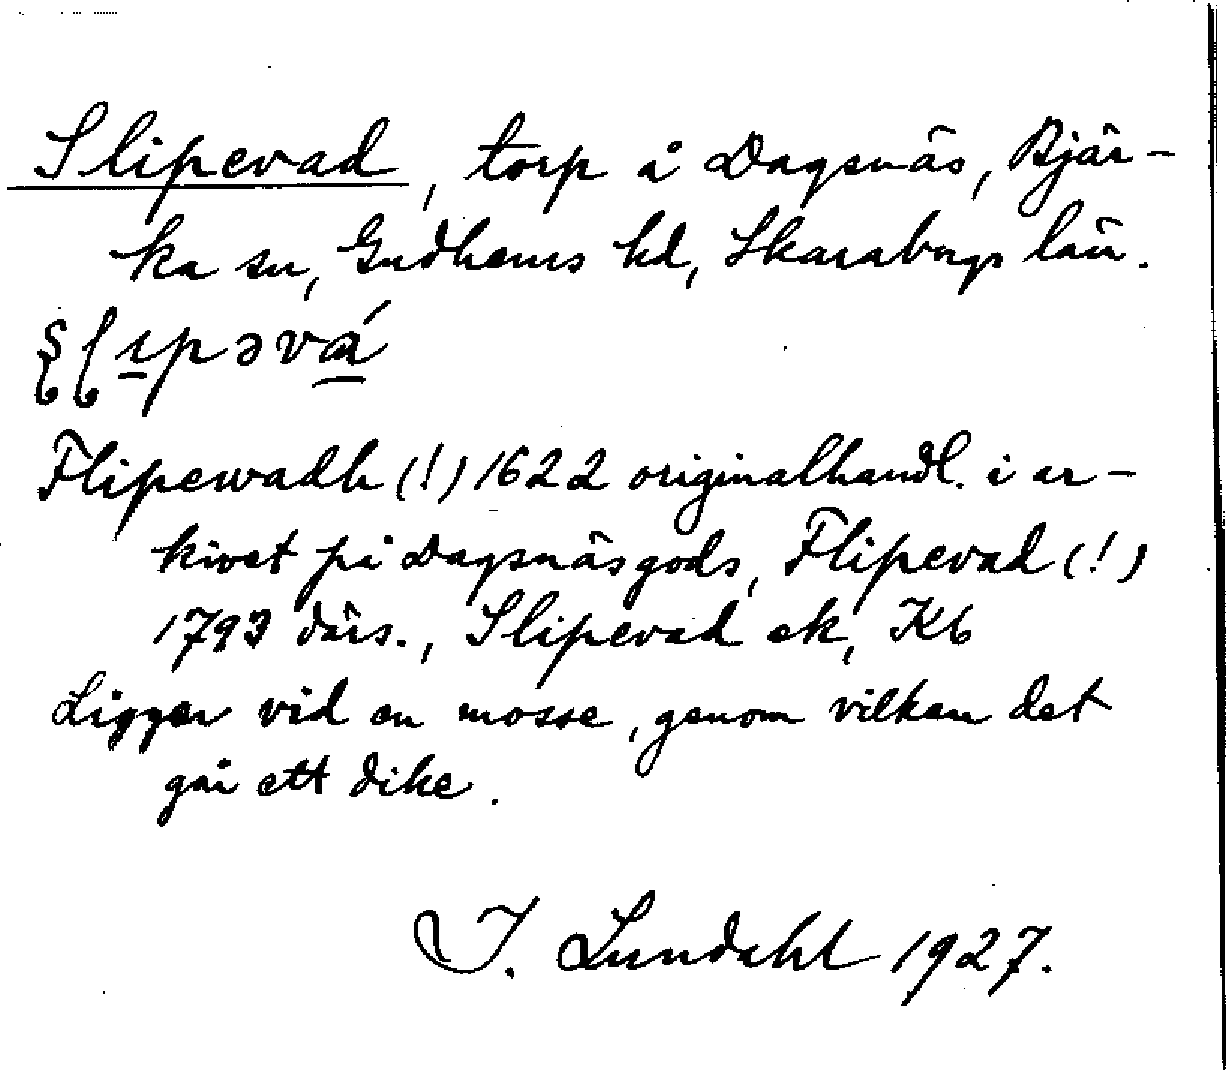 Slipevad, torp å Dagsnäs, Bjär-
ka sn, Gudhems hd, Skaraborgs län.
Flipewadh (!) 1622 originalhandl. i ar-
kivet på Dagsnäs gods, Flipevad (!)
1793 därs., Slipevad ek, Kb
Ligger vid en mosse, genom vilken det
går ett dike.
I. Lundahl 1927.